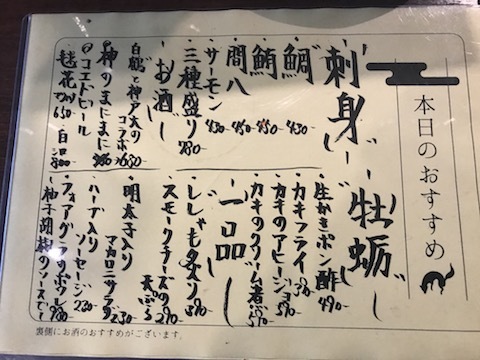 本日のおすすめ
刺身
鯛 430-
鮪 450-
間八 450-
サーモン 430-
三種盛り 780-
お酒
白鶴と神戸大の
コラボ
神のまにまに 680-
コエドビール
毬花 650- 白 800-
牡蛎
生かきポン酢 490-
カキフライ
カキのアヒージョ 590-
カキのクリーム煮 590-
一品
ししゃも炙り 390-
スモークチーズの天ぷら 390-
明太子入り
マカロニサラダ
ハーブ入り
ソーセージ
フォアグラのポワレ 980-
柚子胡椒のソースで
裏側にお酒のおすすめがございます。